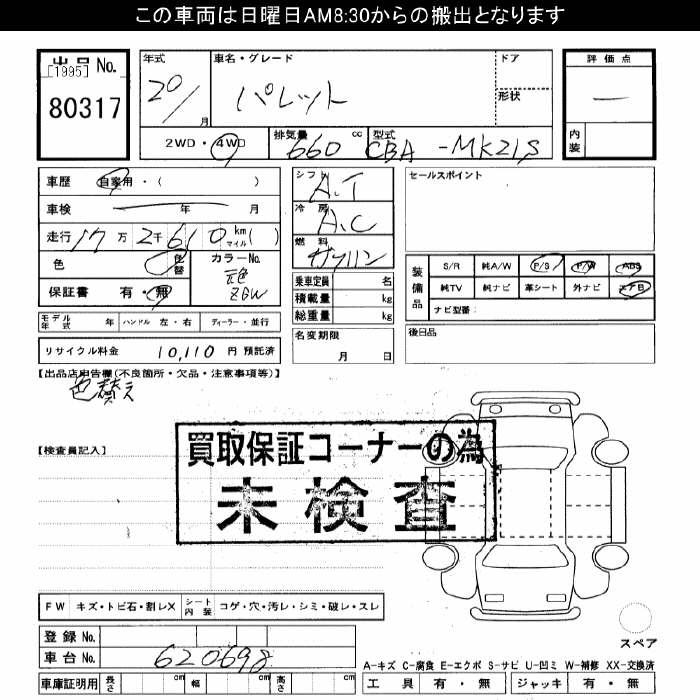 この車両は日曜日AM8:30からの搬出となります
出品 No.
[1995]
80317
年式
20/
月
車名・グレード
パレット
ドア
形状
評価点
—
内装
2WD・4WD
排気量
660 cc
型式
CBA-MK21S
車歴 自家用・( )
車検 年 月
走行 17万2千610 km マイル( )
色 色替
カラーNo.
元色
ZGW
保証書 有・無
シフト
A.T
冷房
A.C
燃料
ガソリン
乗車定員 名
積載量 kg
総重量 kg
セールスポイント
装備品
S/R 純A/W P/S P/W ABS
純TV 純ナビ 革シート 外ナビ エアB
ナビ型番:
モデル年式 年 ハンドル 左・右 ディーラー・並行
名変期限
月 日
後日品
リサイクル料金 10,110 円 預託済
【出品店申告欄(不良箇所・欠品・注意事項等)】
色替え
【検査員記入】
買取保証コーナーの為
未検査
FW キズ・トビ石・割レX シート内装 コゲ・穴・汚レ・シミ・破レ・スレ
登録 No.
車台 No. 620698
車庫証明用 長さ cm 幅 cm 高さ cm
スペア
A-キズ C-腐食 E-エクボ S-サビ U-凹ミ W-補修 XX-交換済
工具 有・無 ジャッキ 有・無